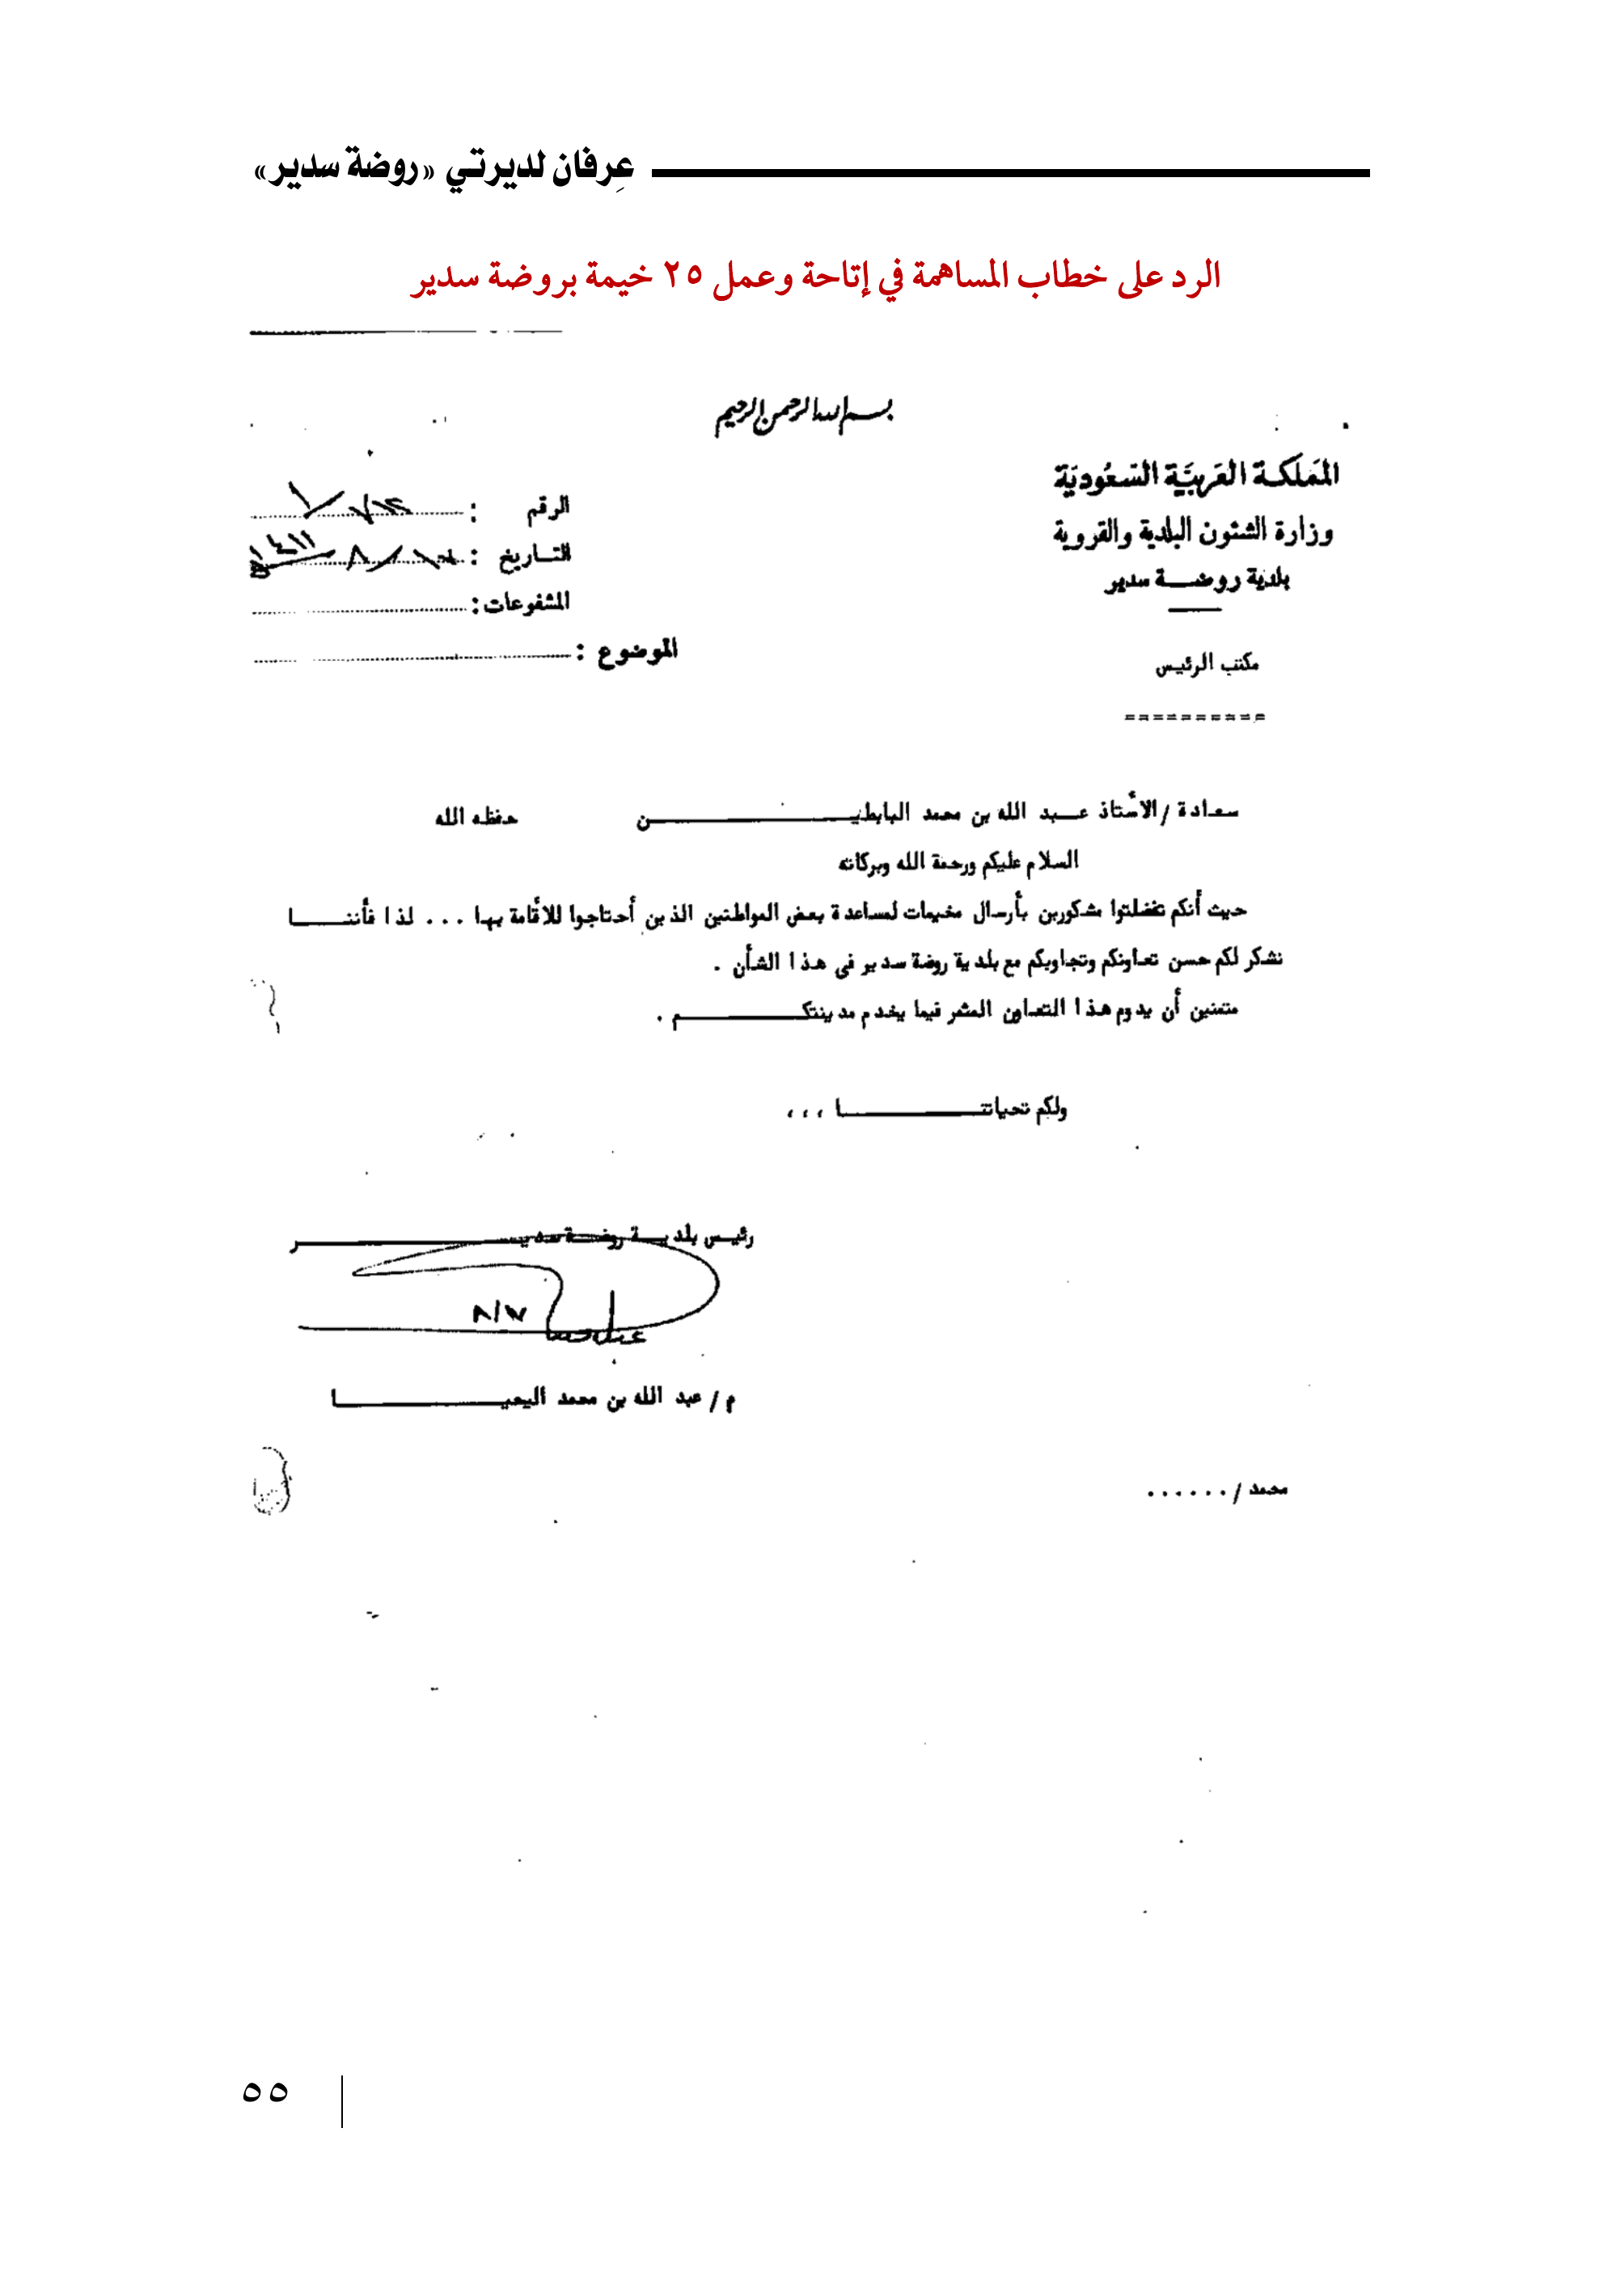 عِرفان لديرتي «روضة سدير»
الرد على خطاب المساهمة في إتاحة وعمل ٢٥ خيمة بروضة سدير
بسم الله الرحمن الرحيم
المملكة العربية السعودية
وزارة الشئون البلدية والقروية
بلدية روضة سدير
مكتب الرئيس
==========
الرقم :
التاريخ :
المشفوعات :
الموضوع :
سعادة / الأستاذ عبد الله بن محمد البابطين حفظه الله
السلام عليكم ورحمة الله وبركاته
حيث أنكم تفضلتوا مشكورين بأرسال مخيمات لمساعدة بعض المواطنين الذين أحتاجوا للاقامة بها ... لذا فأننا
نشكر لكم حسن تعاونكم وتجاوبكم مع بلدية روضة سدير في هذا الشأن .
متمنين أن يدوم هذا التعاون المثمر فيما يخدم مدينتكم .
ولكم تحياتنا ،،،
رئيس بلدية روضة سدير
م / عبد الله بن محمد اليحيا
محمد / ......
٥٥